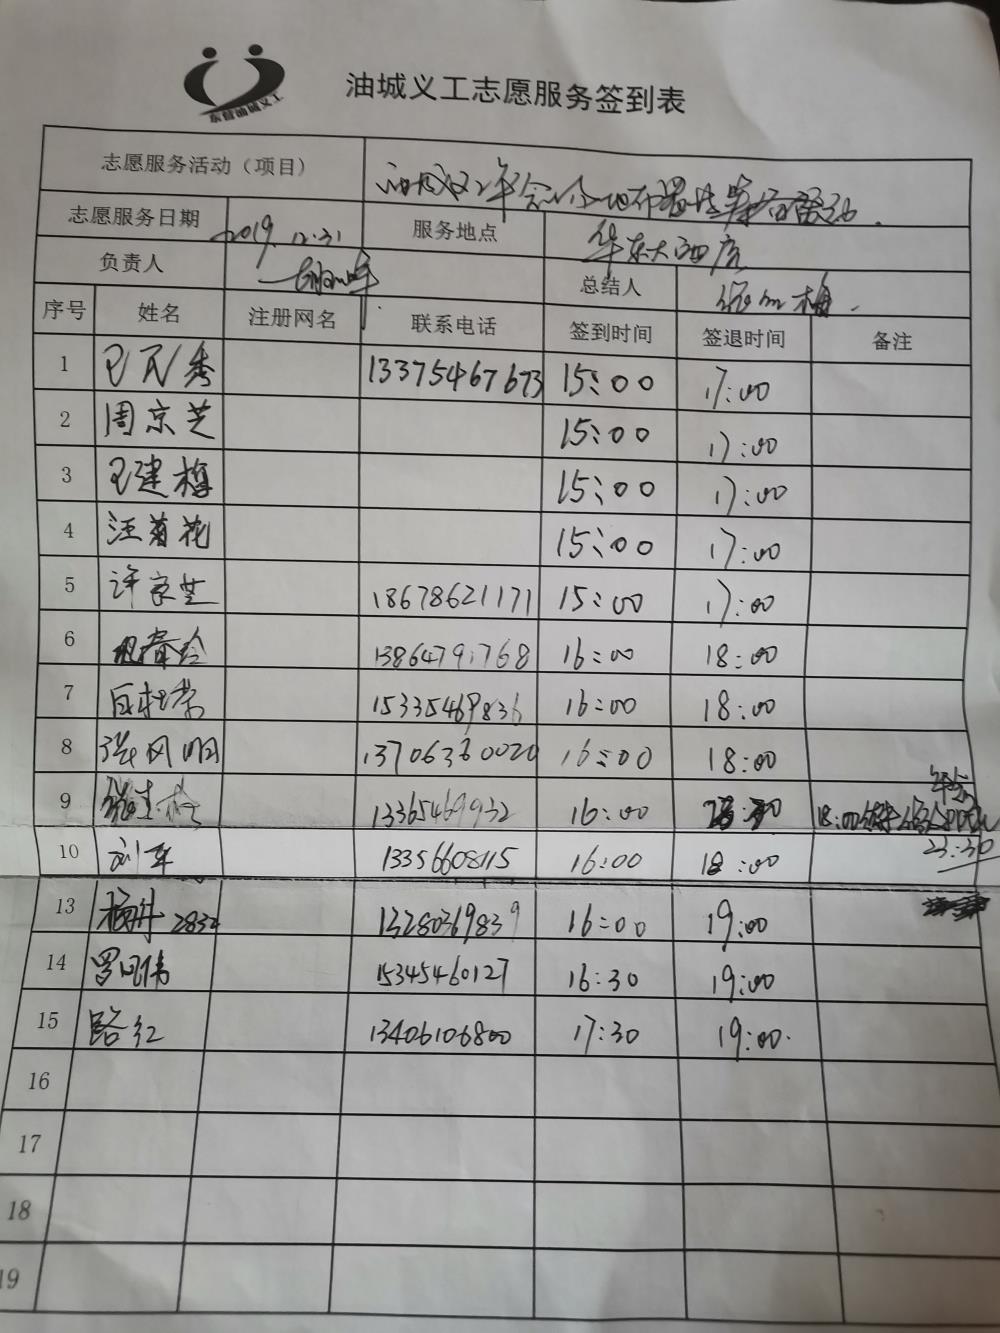 东营油城义工
油城义工志愿服务签到表
志愿服务活动（项目）
志愿服务日期 2019.12.31 服务地点 华东大酒店
负责人 总结人
序号 姓名 注册网名 联系电话 签到时间 签退时间 备注
1 秀 13375467673 15:00 17:00
2 周京芝 15:00 17:00
3 建梅 15:00 17:00
4 汪菊花 15:00 17:00
5 许家芝 18678621171 15:00 17:00
6 春玲 13864791768 16:00 18:00
7 15335469836 16:00 18:00
8 张风明 13706360020 16:00 18:00
9 13365469932 16:00 18:00
10 刘军 13356608115 16:00 18:00 23:30
13 杨丹 2834 13280369839 16:00 19:00
14 罗 伟 15345460127 16:30 19:00
15 路红 13406106800 17:30 19:00
16
17
18
19